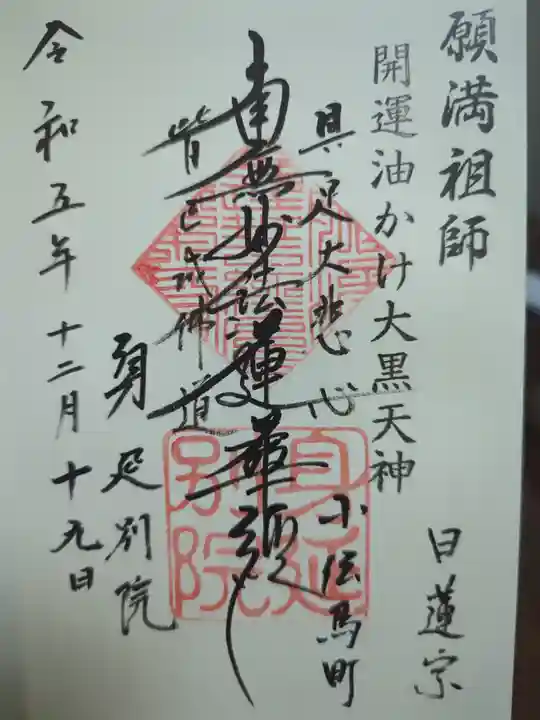 願満祖師
日蓮宗
開運油かけ大黒天神
小伝馬町
具足大悲心
南無妙法蓮華経
皆已成佛道
身延別院
令和五年十二月十九日
身延
別院